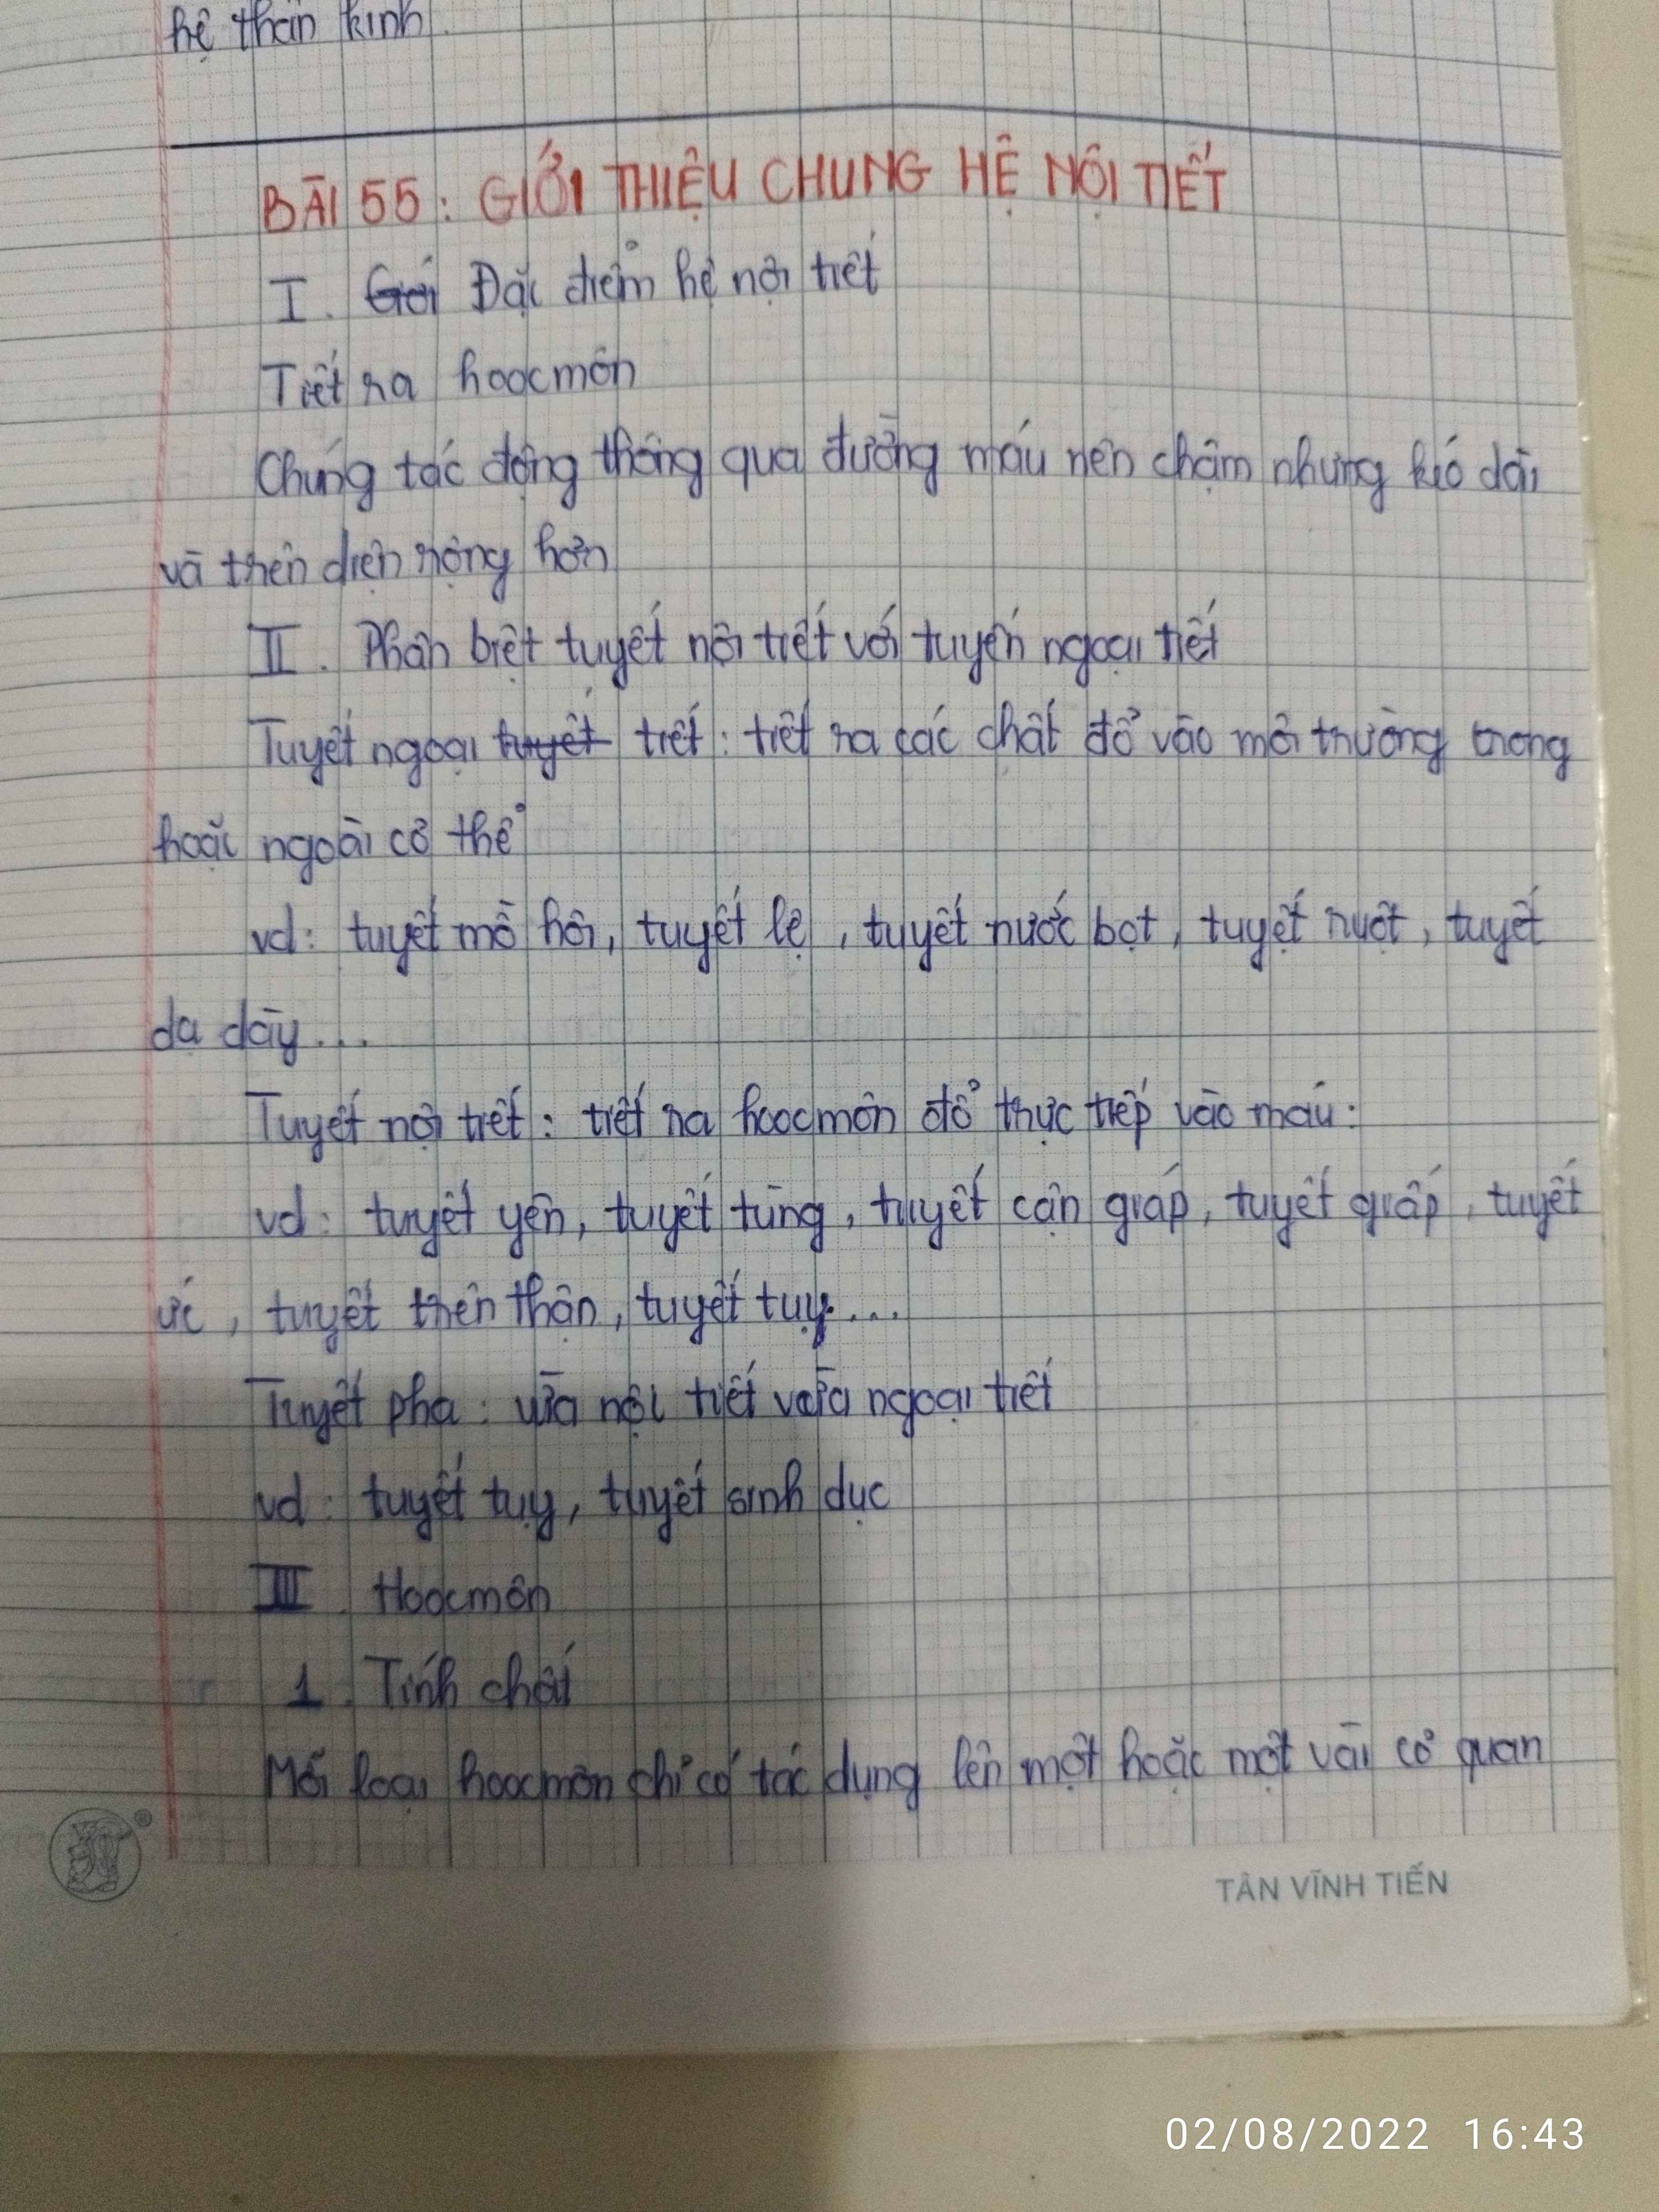 hệ thần kinh.
BÀI 55: GIỚI THIỆU CHUNG HỆ NỘI TIẾT
I. Giới Đặc điểm hệ nội tiết
Tiết ra hoocmôn
Chúng tác động thông qua đường máu nên chậm nhưng kéo dài
và trên diện rộng hơn
II. Phân biệt tuyết nội tiết với tuyến ngoại tiết
Tuyết ngoại tuyết tiết: tiết ra các chất đổ vào môi trường trong
hoặc ngoài cơ thể
vd: tuyết mồ hôi, tuyết lệ, tuyết nước bọt, tuyết ruột, tuyết
dạ dày...
Tuyết nội tiết: tiết ra hoocmôn đổ trực tiếp vào máu:
vd: tuyết yên, tuyết tùng, tuyết cận giáp, tuyết giáp, tuyết
ức, tuyết trên thận, tuyết tuỵ...
Tuyết pha: vừa nội tiết vừa ngoại tiết
vd: tuyết tuỵ, tuyết sinh dục
III. Hoocmôn
1. Tính chất
Mỗi loại hoocmôn chỉ có tác dụng lên một hoặc một vài cơ quan
TÂN VĨNH TIẾN
02/08/2022 16:43